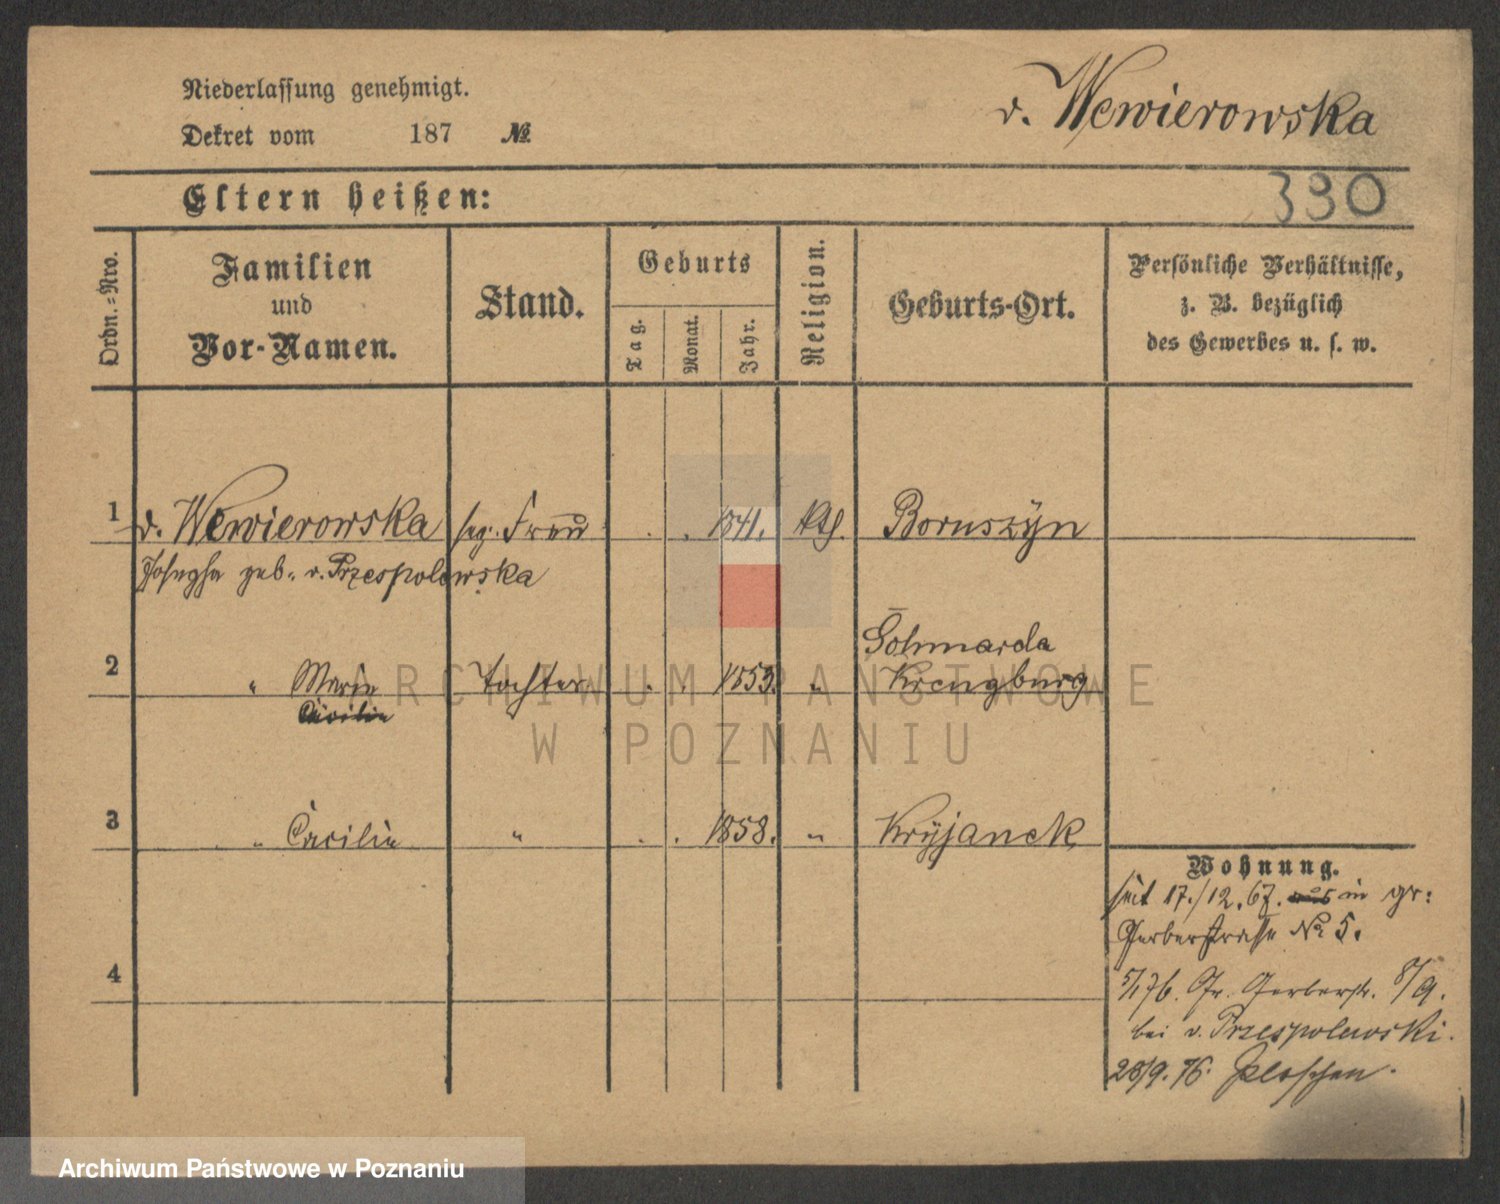 Niederlassung genehmigt.
Dekret vom 187 №
v. Wewierowska
Eltern heißen:
390
Ordn.=Nro.
Familien
und
Vor-Namen.
Stand.
Geburts
Tag.
Monat.
Jahr.
Religion.
Geburts-Ort.
Persönliche Verhältnisse,
z. B. bezüglich
des Gewerbes u. s. w.
1 v. Wewierowska Frau 1841. kth. Boruszyn
Josepha geb. v. Przespolewska
Gohmarda
2 " Marie Tochter 1853. " Kreuzburg
Cäcilie
3 " Caecilie " 1858. " Kryjanek
Wohnung.
seit 17./12.67. aus in gr:
Gerberstrasse № 5.
4
5/1 76. Gr. Gerberstr. 8/9.
bei v. Przespolewski.
28/9. 76. Pleschen.
ARCHIWUM PAŃSTWOWE
W POZNANIU
Archiwum Państwowe w Poznaniu